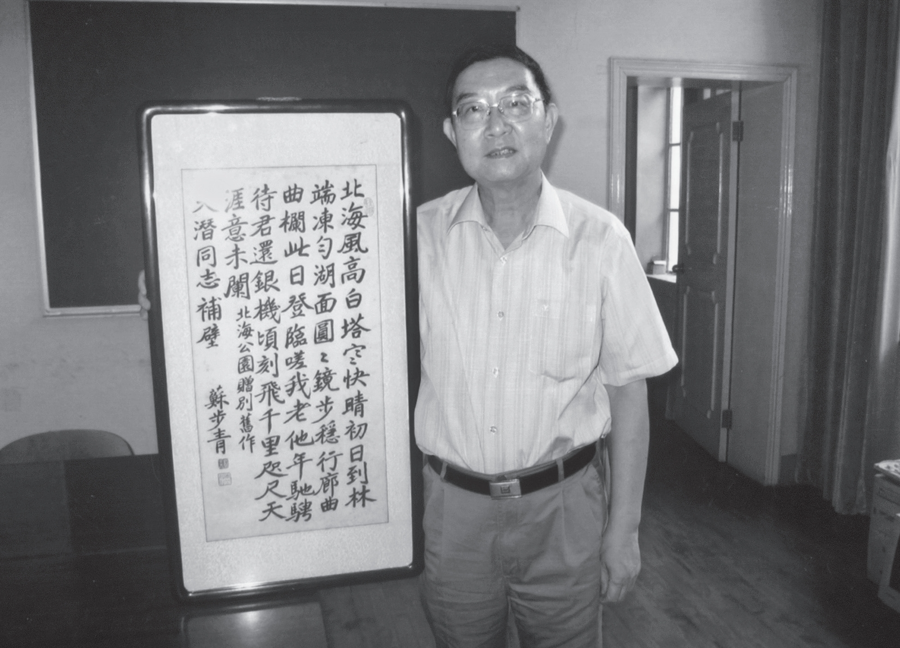 北海風高白塔寒快晴初日到林
端凍勻湖面圓〻鏡步穩行廊曲
曲欄此日登臨嗟我老他年馳騁
待君還銀機頃刻飛千里咫尺天
涯意未闌 北海公園贈別舊作
潛同志補壁 蘇步青